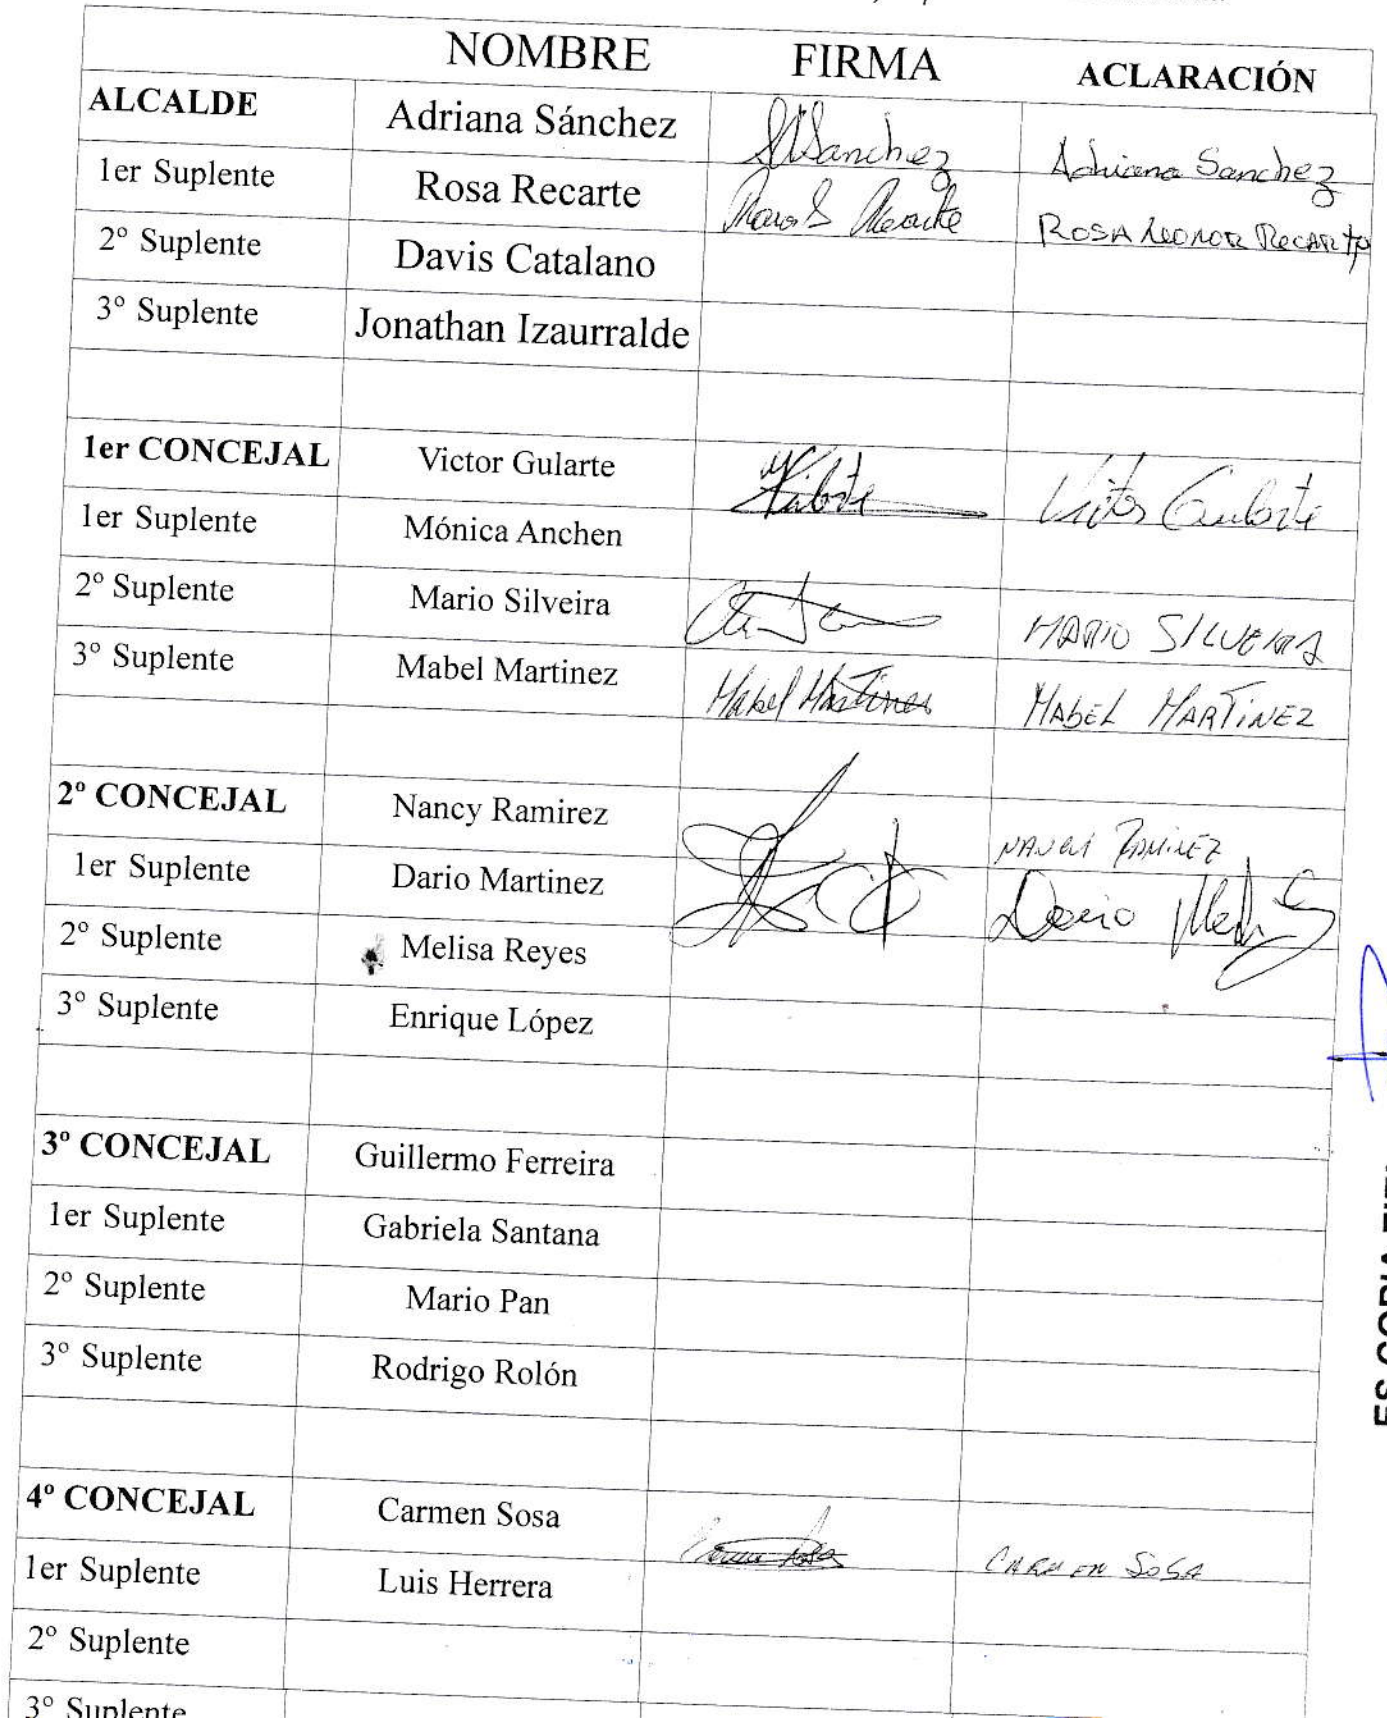 NOMBRE FIRMA ACLARACIÓN
ALCALDE Adriana Sánchez Sanchez Adriana Sanchez
1er Suplente Rosa Recarte Rosa Recarte ROSA LEONOR RECARTE
2º Suplente Davis Catalano
3º Suplente Jonathan Izaurralde
1er CONCEJAL Victor Gularte Victor Gularte
1er Suplente Mónica Anchen
2º Suplente Mario Silveira MARIO SILVEIRA
3º Suplente Mabel Martinez Mabel Martinez MABEL MARTINEZ
2º CONCEJAL Nancy Ramirez NANCY RAMIREZ
1er Suplente Dario Martinez Dario
2º Suplente Melisa Reyes
3º Suplente Enrique López
3º CONCEJAL Guillermo Ferreira
1er Suplente Gabriela Santana
2º Suplente Mario Pan
3º Suplente Rodrigo Rolón
4º CONCEJAL Carmen Sosa Carmen Sosa CARMEN SOSA
1er Suplente Luis Herrera
2º Suplente
3º Suplente
ES COPIA